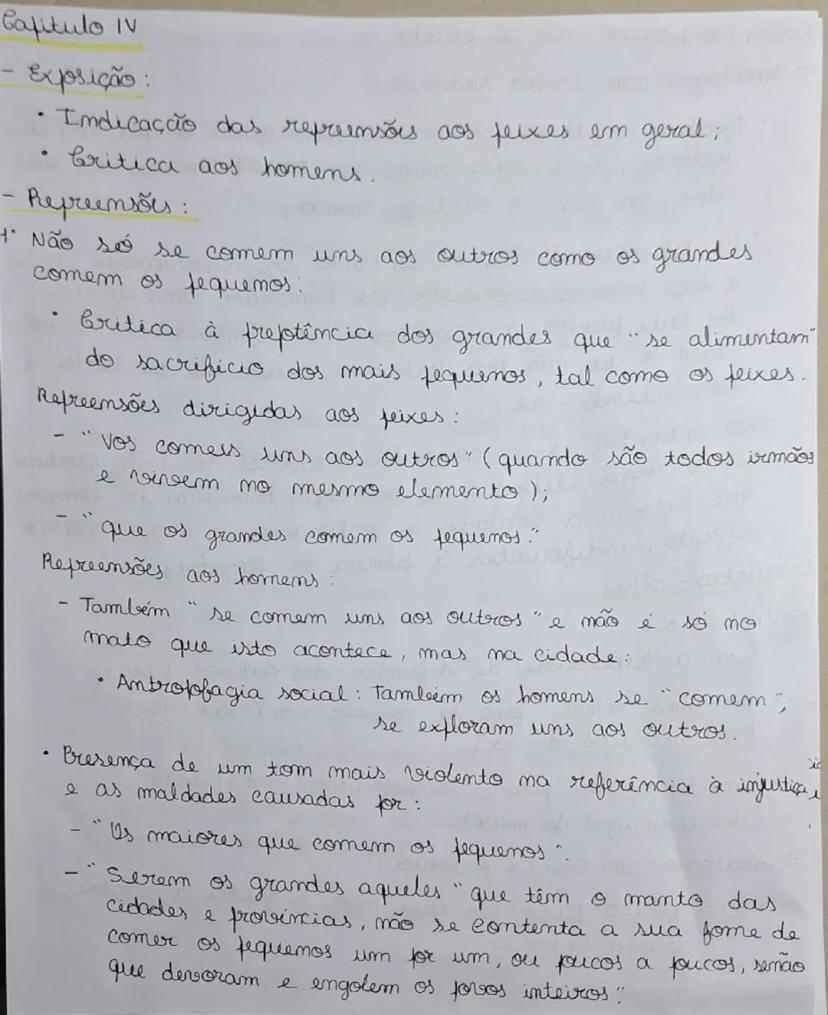 Capitulo IV
- Exposição:
• Indicação das repreensões aos peixes em geral;
• Critica aos homens.
- Repreensões:
1º Não só se comem uns aos outros como os grandes
comem os pequenos.
• Critica à prepotência dos grandes que "se alimentam"
do sacrifício dos mais pequenos, tal como os peixes.
Repreensões dirigidas aos peixes:
- "Vos comeis uns aos outros" (quando são todos irmãos
e vivem no mesmo elemento);
- "que os grandes comem os pequenos."
Repreensões aos homens:
- Também "se comem uns aos outros" e não é só no
mato que isto acontece, mas na cidade;
• Antropofagia social: também os homens se "comem",
se exploram uns aos outros.
• Presença de um tom mais violento na referência à injustiça
e as maldades causadas por:
- "Os maiores que comem os pequenos".
- "Serem os grandes aqueles "que têm o manto das
cidades e províncias, não se contenta a sua fome de
comer os pequenos um por um, ou poucos a poucos, senão
que devoram e engolem os povos inteiros".